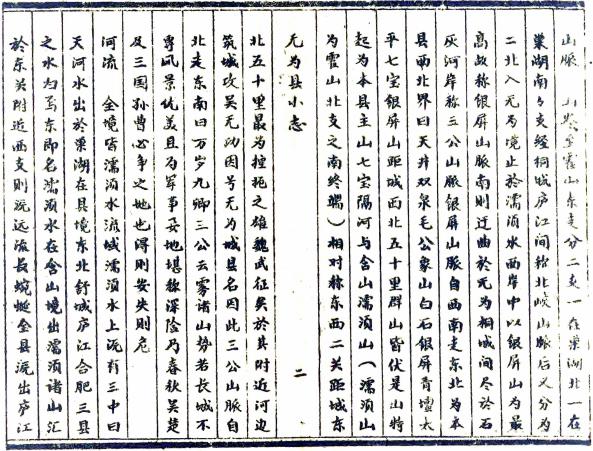 山脉　山至霍山东走分二支一在巢湖北一在
巢湖南々支经桐城庐江间称北峡山脉后又分为
二北入无为境止於濡须水西岸中以银屏山为最
高故称银屏山脉南则迂曲於无为桐城间尽於石
灰河岸称三公山脉银屏山脉自西南走东北为本
县西北界曰天井双泉毛公象山白石银屏青檀太
平七宝银屏山距城西北五十里群山皆伏是山特
起为本县主山七宝隔河与含山濡须山（濡须山
为霍山北支之南终端）相对称东西二关距城东
无为县小志　二
北五十里最为控扼之雄魏武征吴於其附近河边
筑城攻吴无功因号无为城县名因此三公山脉自
北走东南曰万岁九卿三公云雾诸山势若长城不
专风景优美且为军事要地堪称深险乃春秋吴楚
及三国孙曹必争之地也得则安失则危
河流　全境皆濡须水流域濡须水上流有三中曰
天河水出於巢湖在县境东北舒城庐江合肥三县
之水为焉东即名濡须水在含山境出濡须诸山汇
於东关附近西支则流远派长蜿蜒全县流出庐江